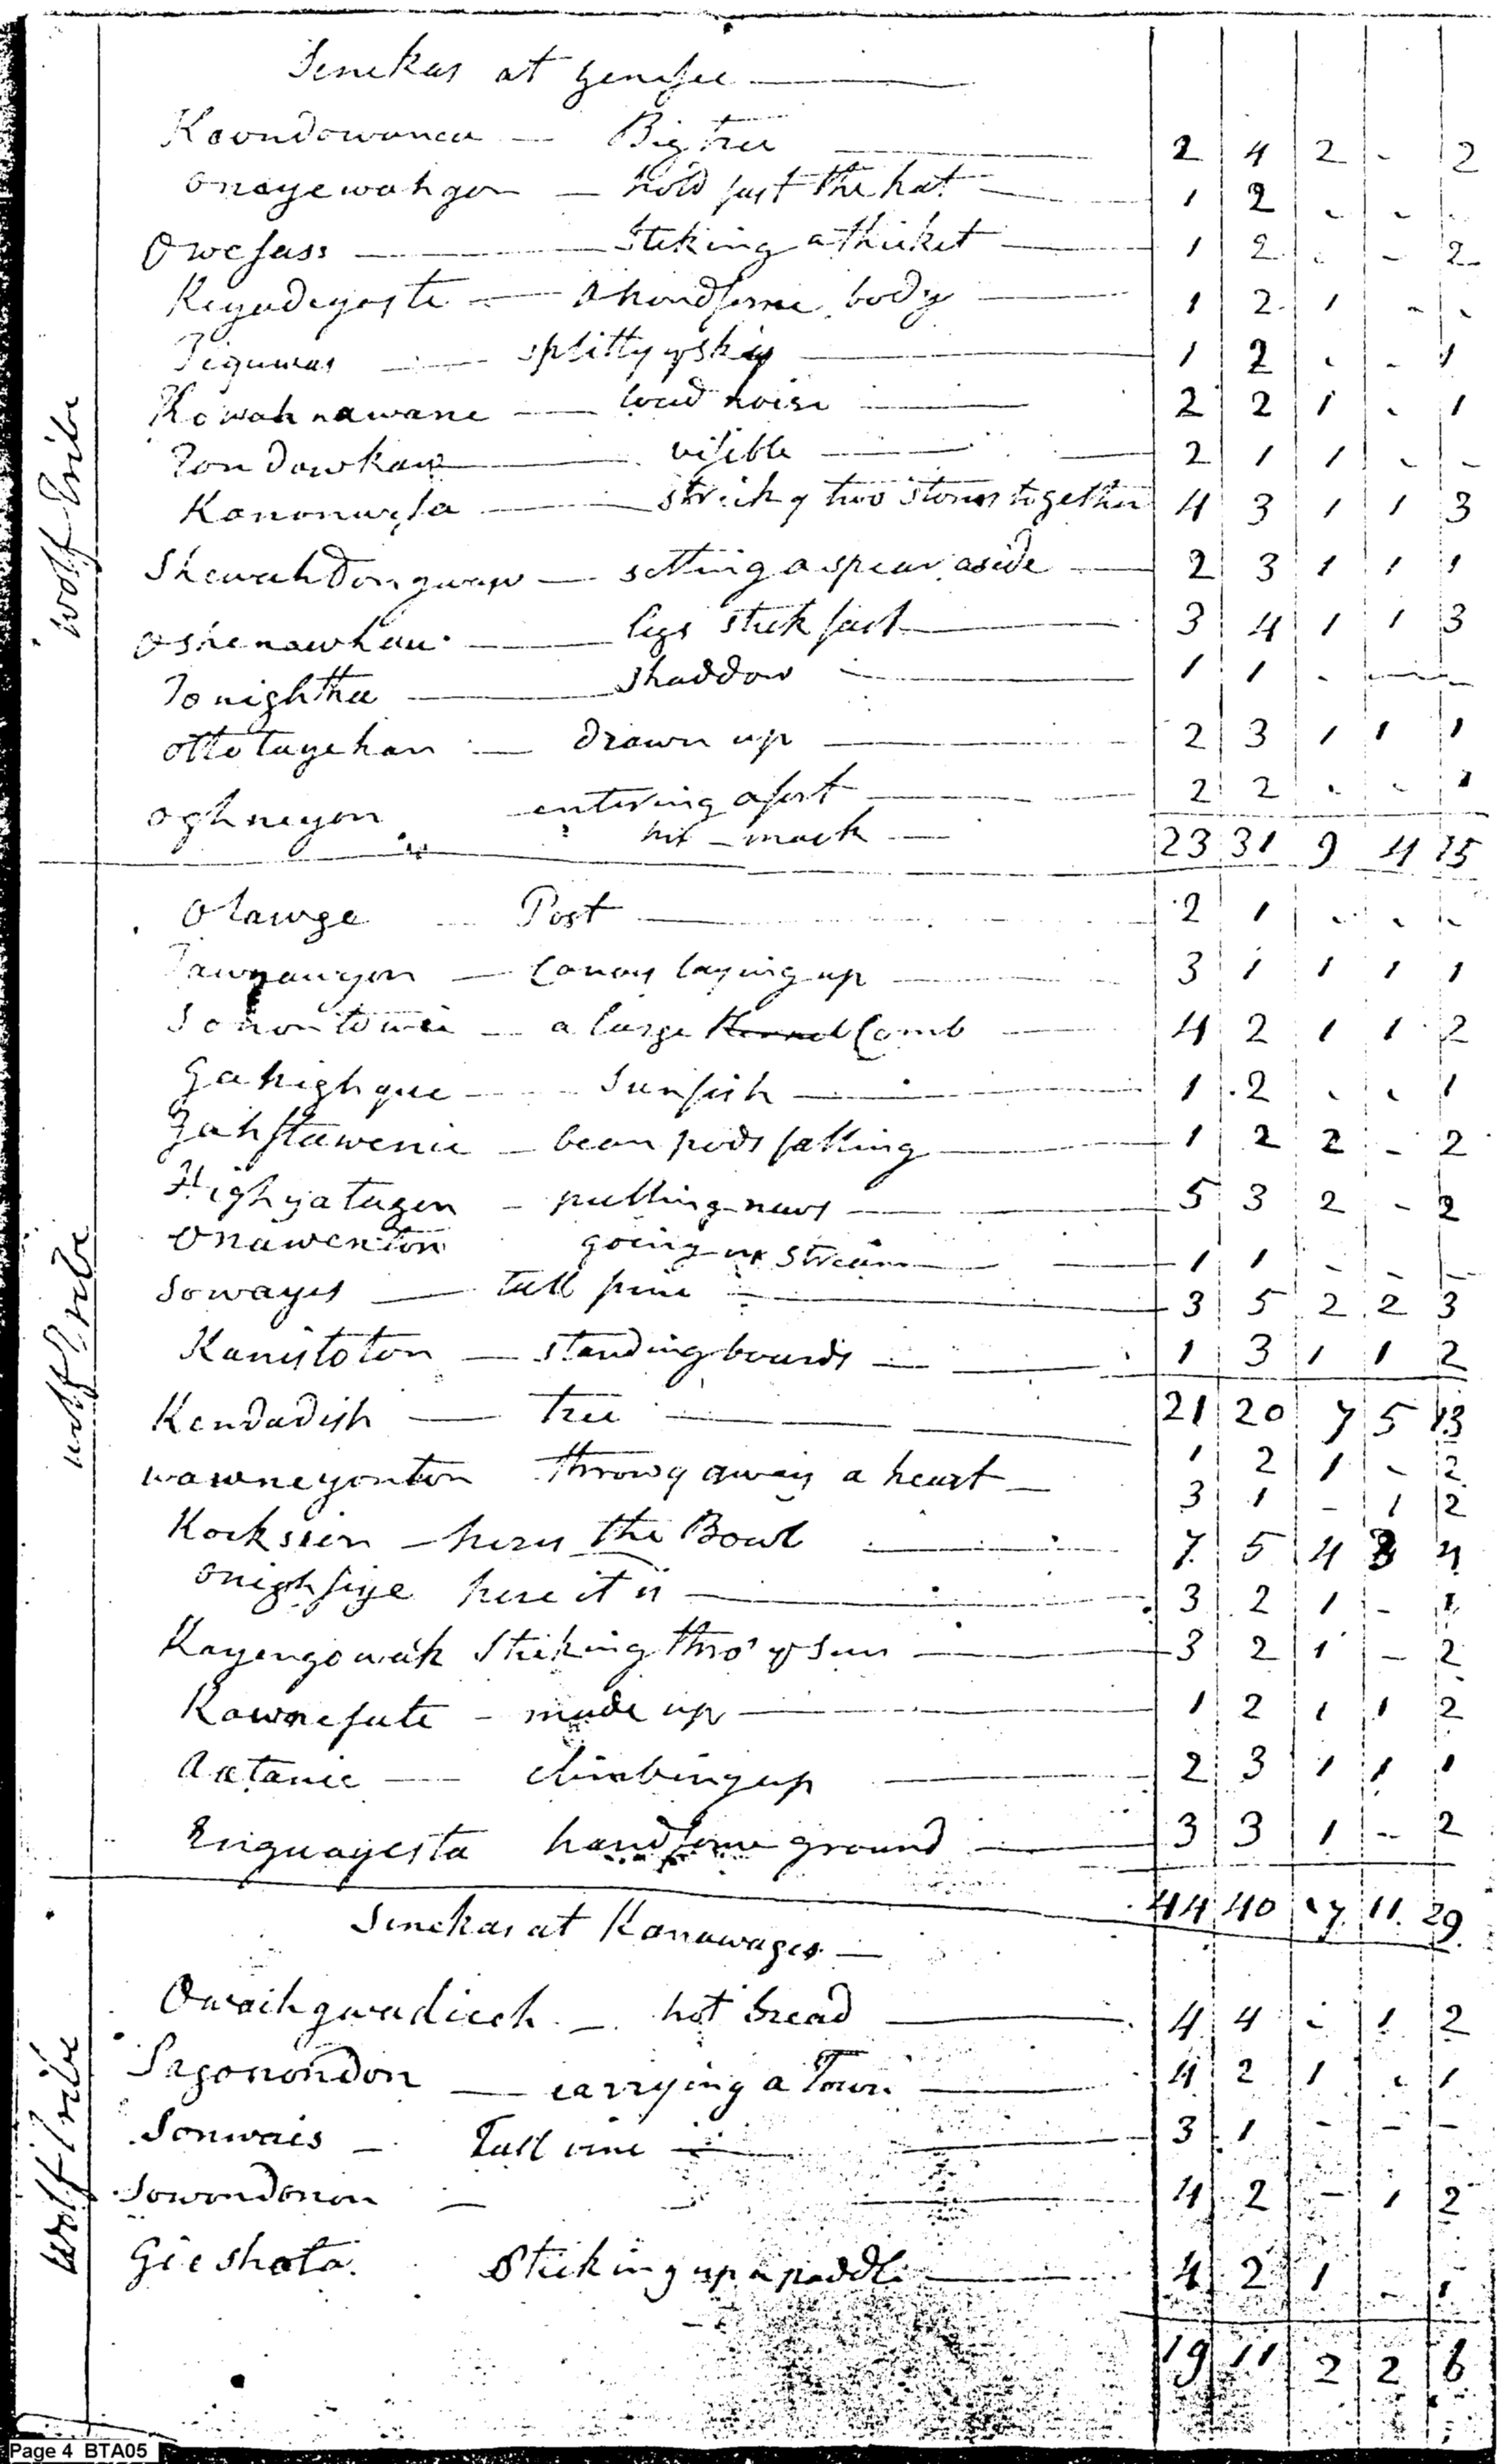 Senekas at Genesee
Koondowanea — Big tree — 2 4 2 - 2
Onayewahgon — hold fast the hat — 1 2 - - -
Owesass — Sticking a thicket — 1 2 - - 2
Keyadeyoste — A handsome body — 1 2 1 - -
Teguwas — splitty ye sky — 1 2 - - 1
Kowahnawane — loud noise — 2 2 1 - 1
Tondowkaw — visible — 2 1 1 - -
Kanonwesa — strikg two stones together 4 3 1 1 3
Shewahdongwap — setting a spear aside — 2 3 1 1 1
Oshenawhau — legs stick fast — 3 4 1 1 3
Tonighthee — Shaddow — 1 1 - - -
Ottotayehan — Drawn up — 2 3 1 1 1
Oghneyon entering a fort — 2 2 - - 1
hit - mack — 23 31 9 4 15
Otawge — Post — 2 1 - - -
Tawnawyon — Canoes laying up — 3 1 1 1 1
Sonontowee — a large Comb — 4 2 1 1 2
Gahighque — Sunfish — 1 2 - - 1
Gahstawenie — bean pods falling — 1 2 2 - 2
Highyatugen — pulling news — 5 3 2 - 2
Onawenton going up Stream — 1 1 - - -
Sowayes — tall pine — 3 5 2 2 3
Kanistoton — standing boards — 1 3 1 1 2
21 20 7 5 13
Kendadish — tree — 1 2 1 - 2
wawneyonton throwg away a heart — 3 1 - 1 2
Kocksien — heres the Bowl — 7 5 4 3 4
Onighsiye here it is — 3 2 1 - 1
Kayengowah Sticking thro' ye sun — 3 2 1 - 2
Kawnesute — made up — 1 2 1 1 2
Aatanie — climbing up — 2 3 1 1 1
Enguayesta handsome ground — 3 3 1 - 2
44 40 7 11 29
Senekas at Kanawages —
Owaihgwadieeh — hot bread — 4 4 - 1 2
Sagonondon — carrying a Town — 4 2 1 - 1
Sonwais — Tall vine — 3 1 - - -
Sowondonon — 4 2 - 1 2
Gieshota Sticking up a paddle — 4 2 1 - 1
19 11 2 2 6
Wolf Tribe
Wolf Tribe
Wolf Tribe
Page 4 BTA05